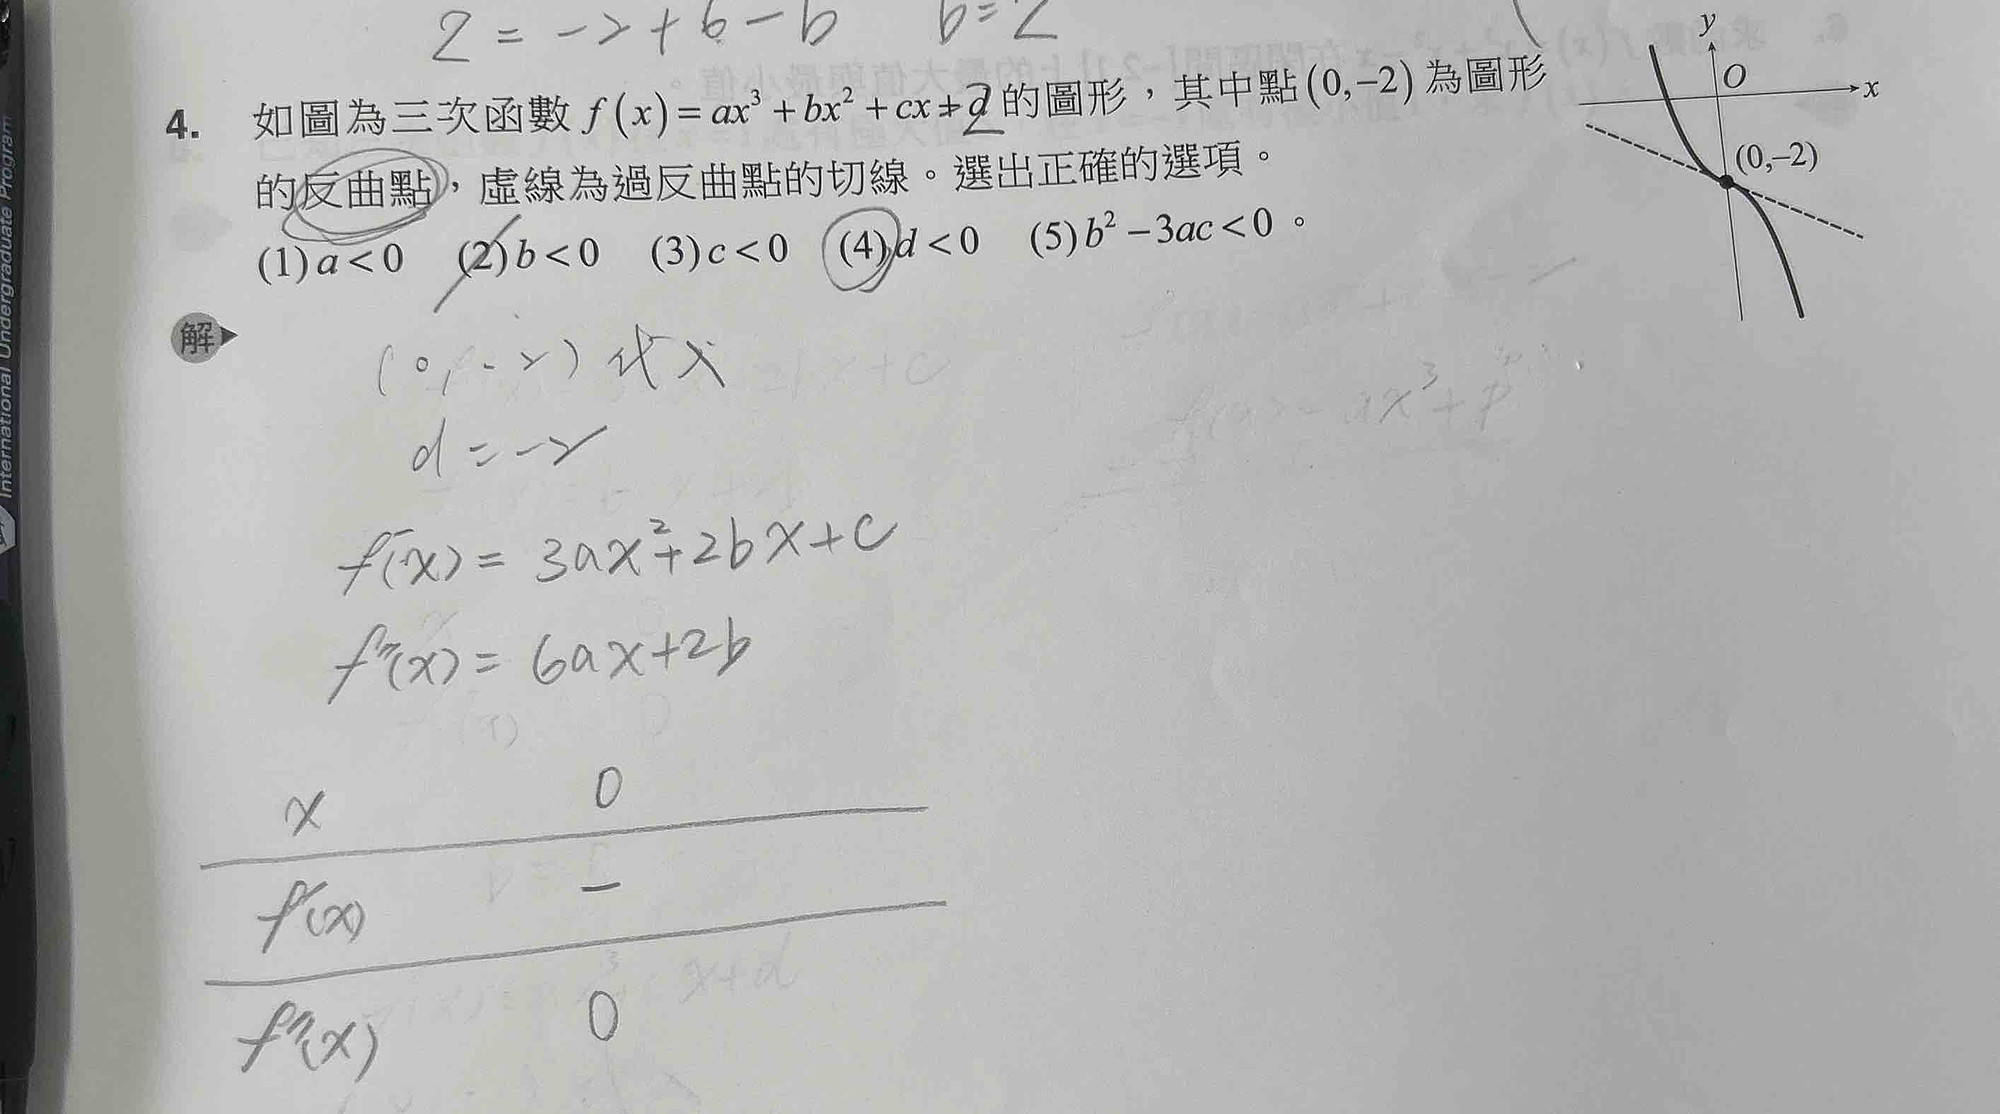 2 = -2+6-b  b=2
4. 如圖為三次函數 f(x)=ax³+bx²+cx+d 的圖形,其中點(0,-2)為圖形
的反曲點,虛線為過反曲點的切線。選出正確的選項。
(1)a<0 (2)b<0 (3)c<0 (4)d<0 (5)b²-3ac<0。
y
O
x
(0,-2)
解
(0,-2)代入
d=-2
f'(x)=3ax²+2bx+c
f''(x)=6ax+2b
x 0
f'(x) -
f''(x) 0
International Undergraduate Program